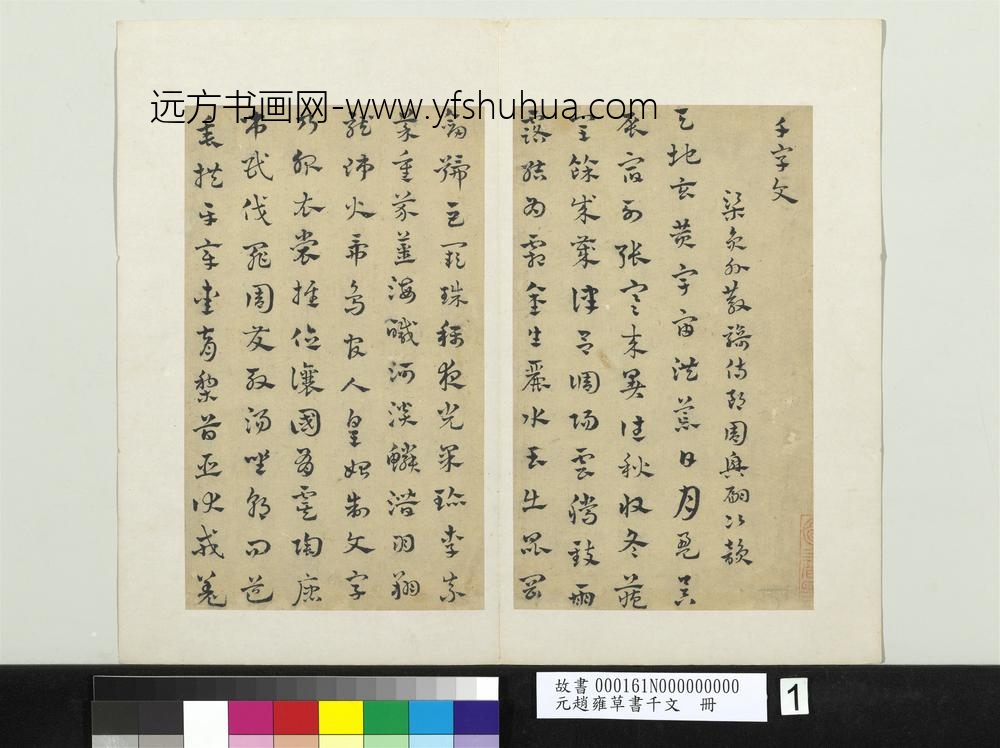 远方书画网-www.yfshuhua.com
千字文
梁員外散騎侍郎周興嗣次韻
天地玄黃宇宙洪荒日月盈昃
辰宿列張寒來暑往秋收冬藏
閏餘成歲律呂調陽雲騰致雨
露結為霜金生麗水玉出崑岡
劍號巨闕珠稱夜光果珍李柰
菜重芥薑海鹹河淡鱗潛羽翔
龍師火帝鳥官人皇始制文字
乃服衣裳推位讓國有虞陶唐
弔民伐罪周發殷湯坐朝問道
垂拱平章愛育黎首臣伏戎羌
故書 000161N000000000
元趙雍草書千文 冊
1